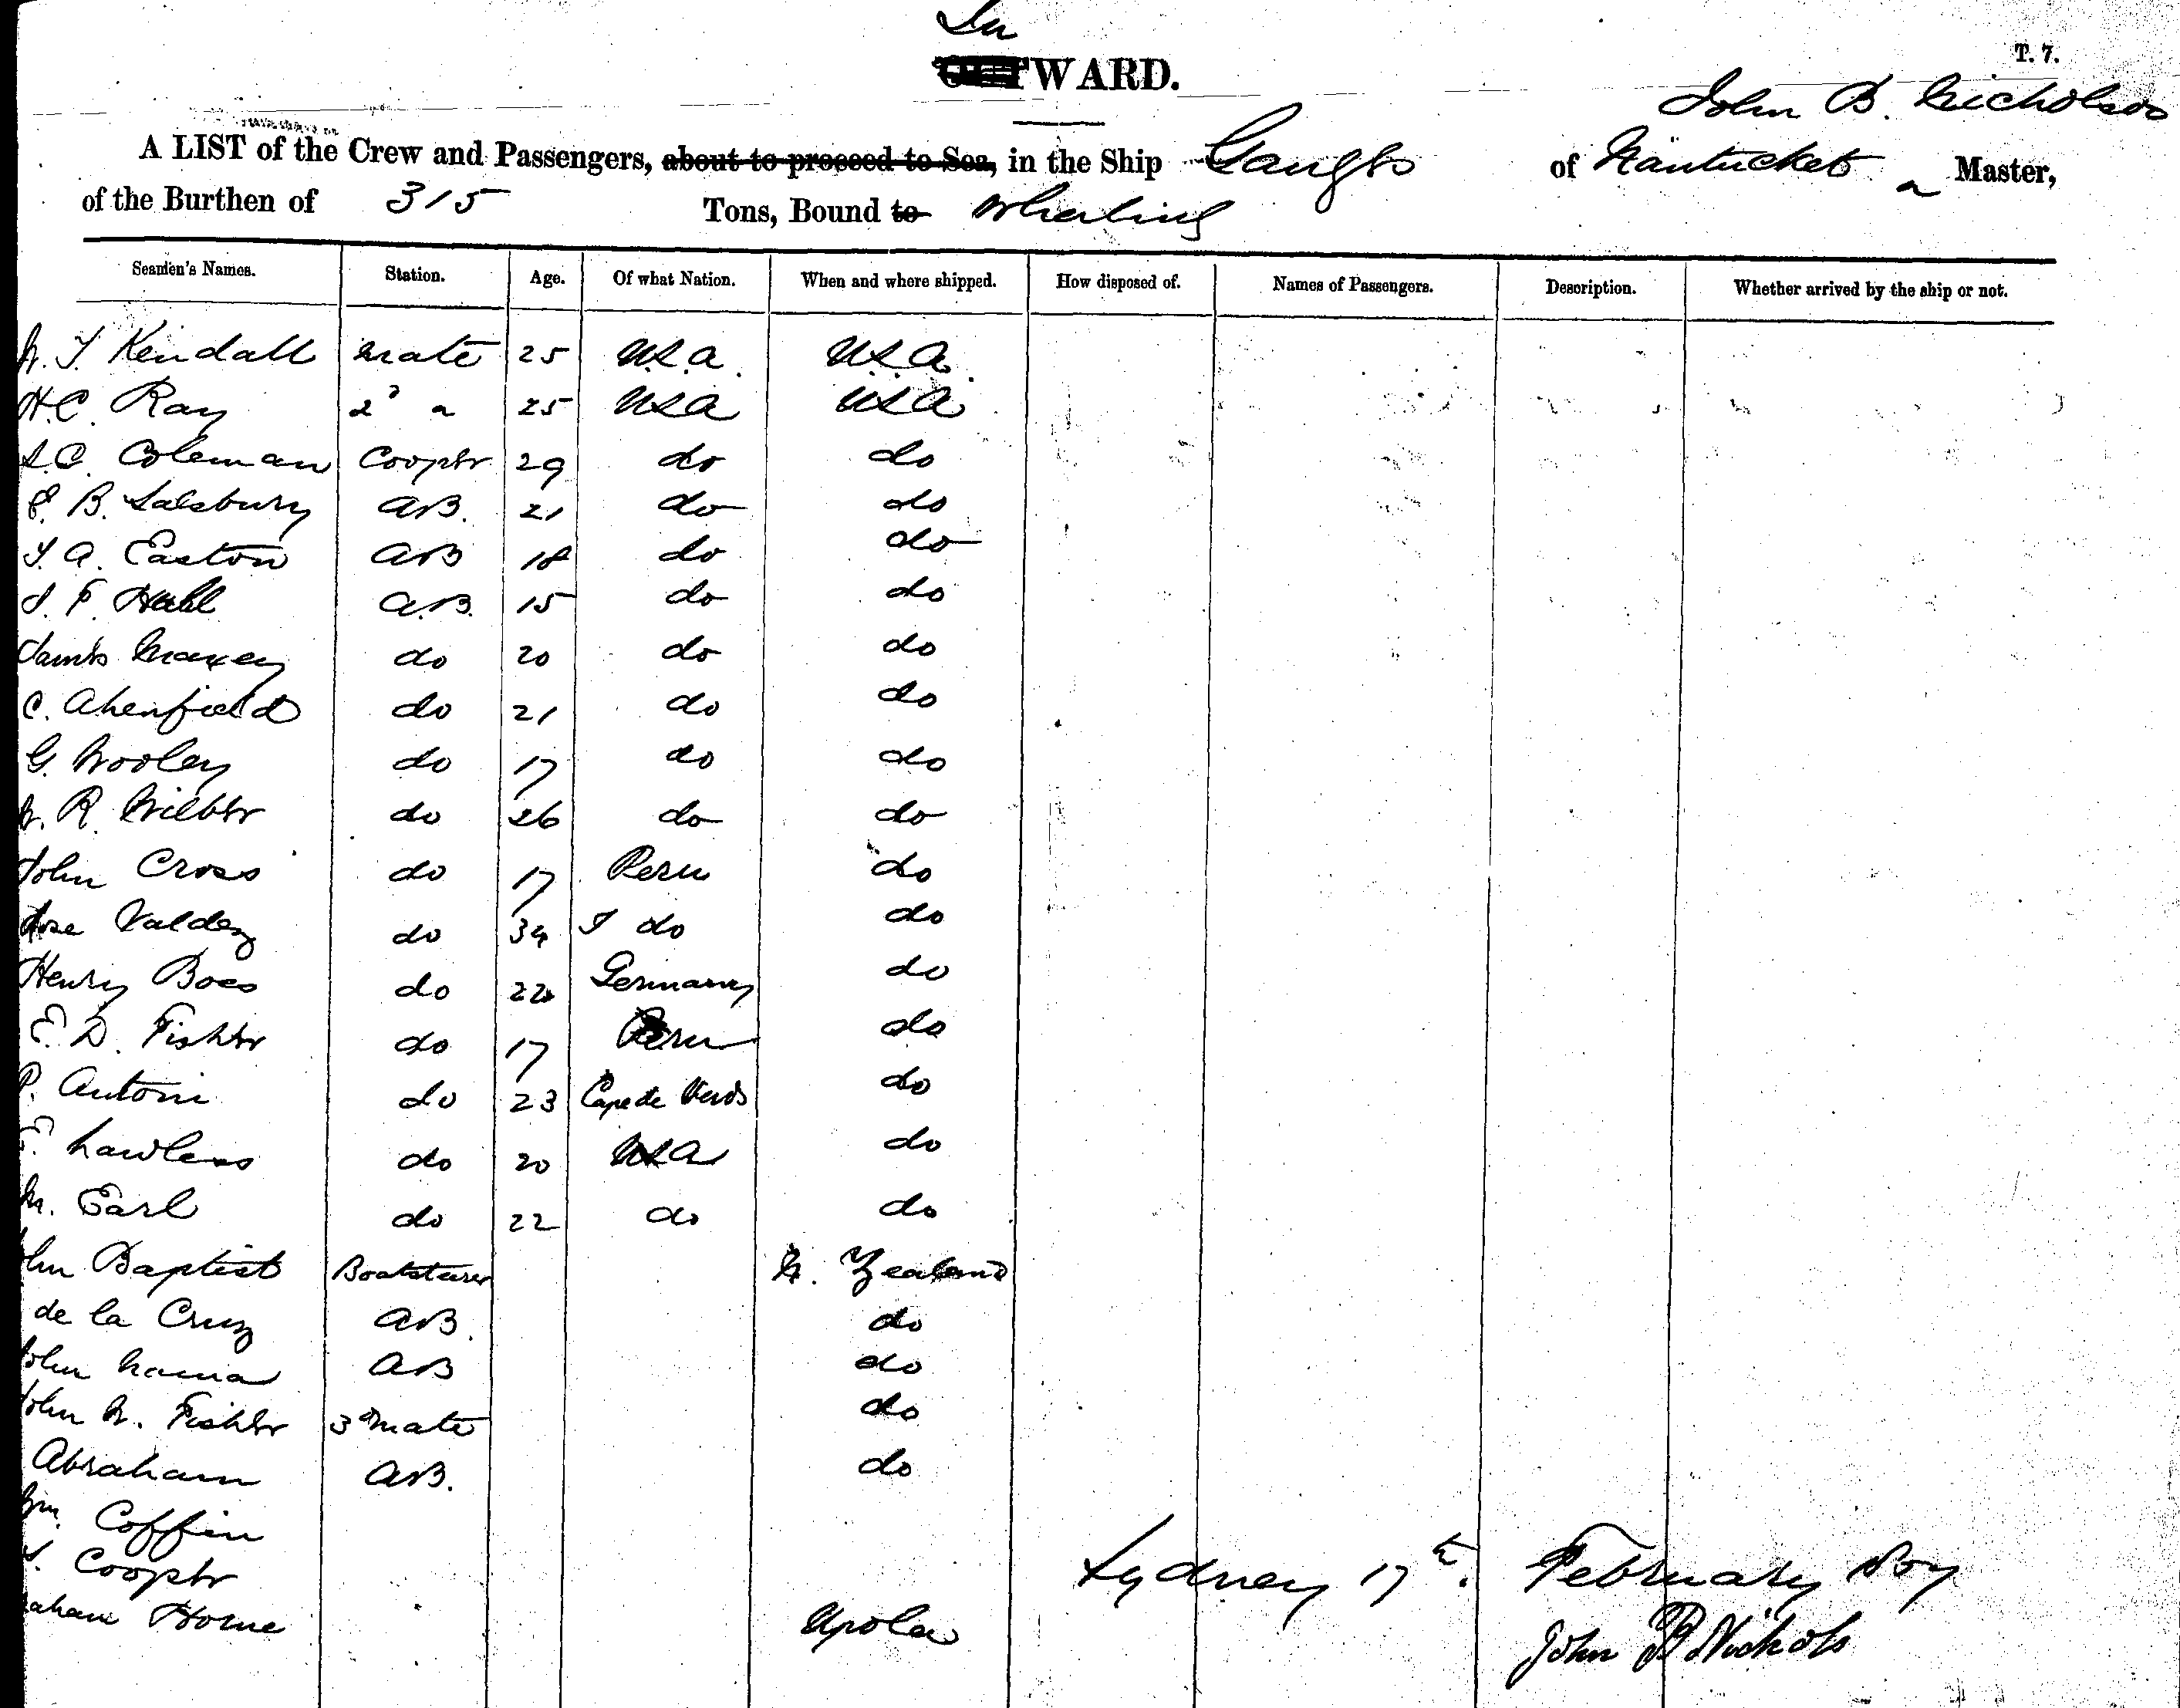 In
WARD.
T. 7.
John B. Nicholson
A LIST of the Crew and Passengers, about to proceed to Sea, in the Ship Ganges of Nantucket Master,
of the Burthen of 315 Tons, Bound to Whaling
Seamen's Names. Station. Age. Of what Nation. When and where shipped. How disposed of. Names of Passengers. Description. Whether arrived by the ship or not.
Kendall Mate 25 U.S.A. U.S.A.
H.C. Ray 2d 25 USA USA
S.C. Coleman Cooper 29 do do
E. B. Salsbury AB. 21 do do
T. A. Easton AB 18 do do
F. Hall A.B. 15 do do
James Maxey do 20 do do
C. do 21 do do
G. Wooley do 17 do do
R. Wilber do 26 do do
John Cross do 17 Peru do
Jose Valdez do 34 do do
Henry Boes do 22 Germany do
E. D. Fisher do 17 Peru do
P. Antoni do 23 Cape de Verds do
Lawless do 20 USA do
Earl do 22 do do
ohn Baptist Boatsteerer N. Zealand
de la Cruz AB. do
John AB do
John W. Fisher 3d Mate do
Abraham AB. do
Wm. Coffin
Cooper
Sydney 17th. February
raham Horne Upola
John B Nichols